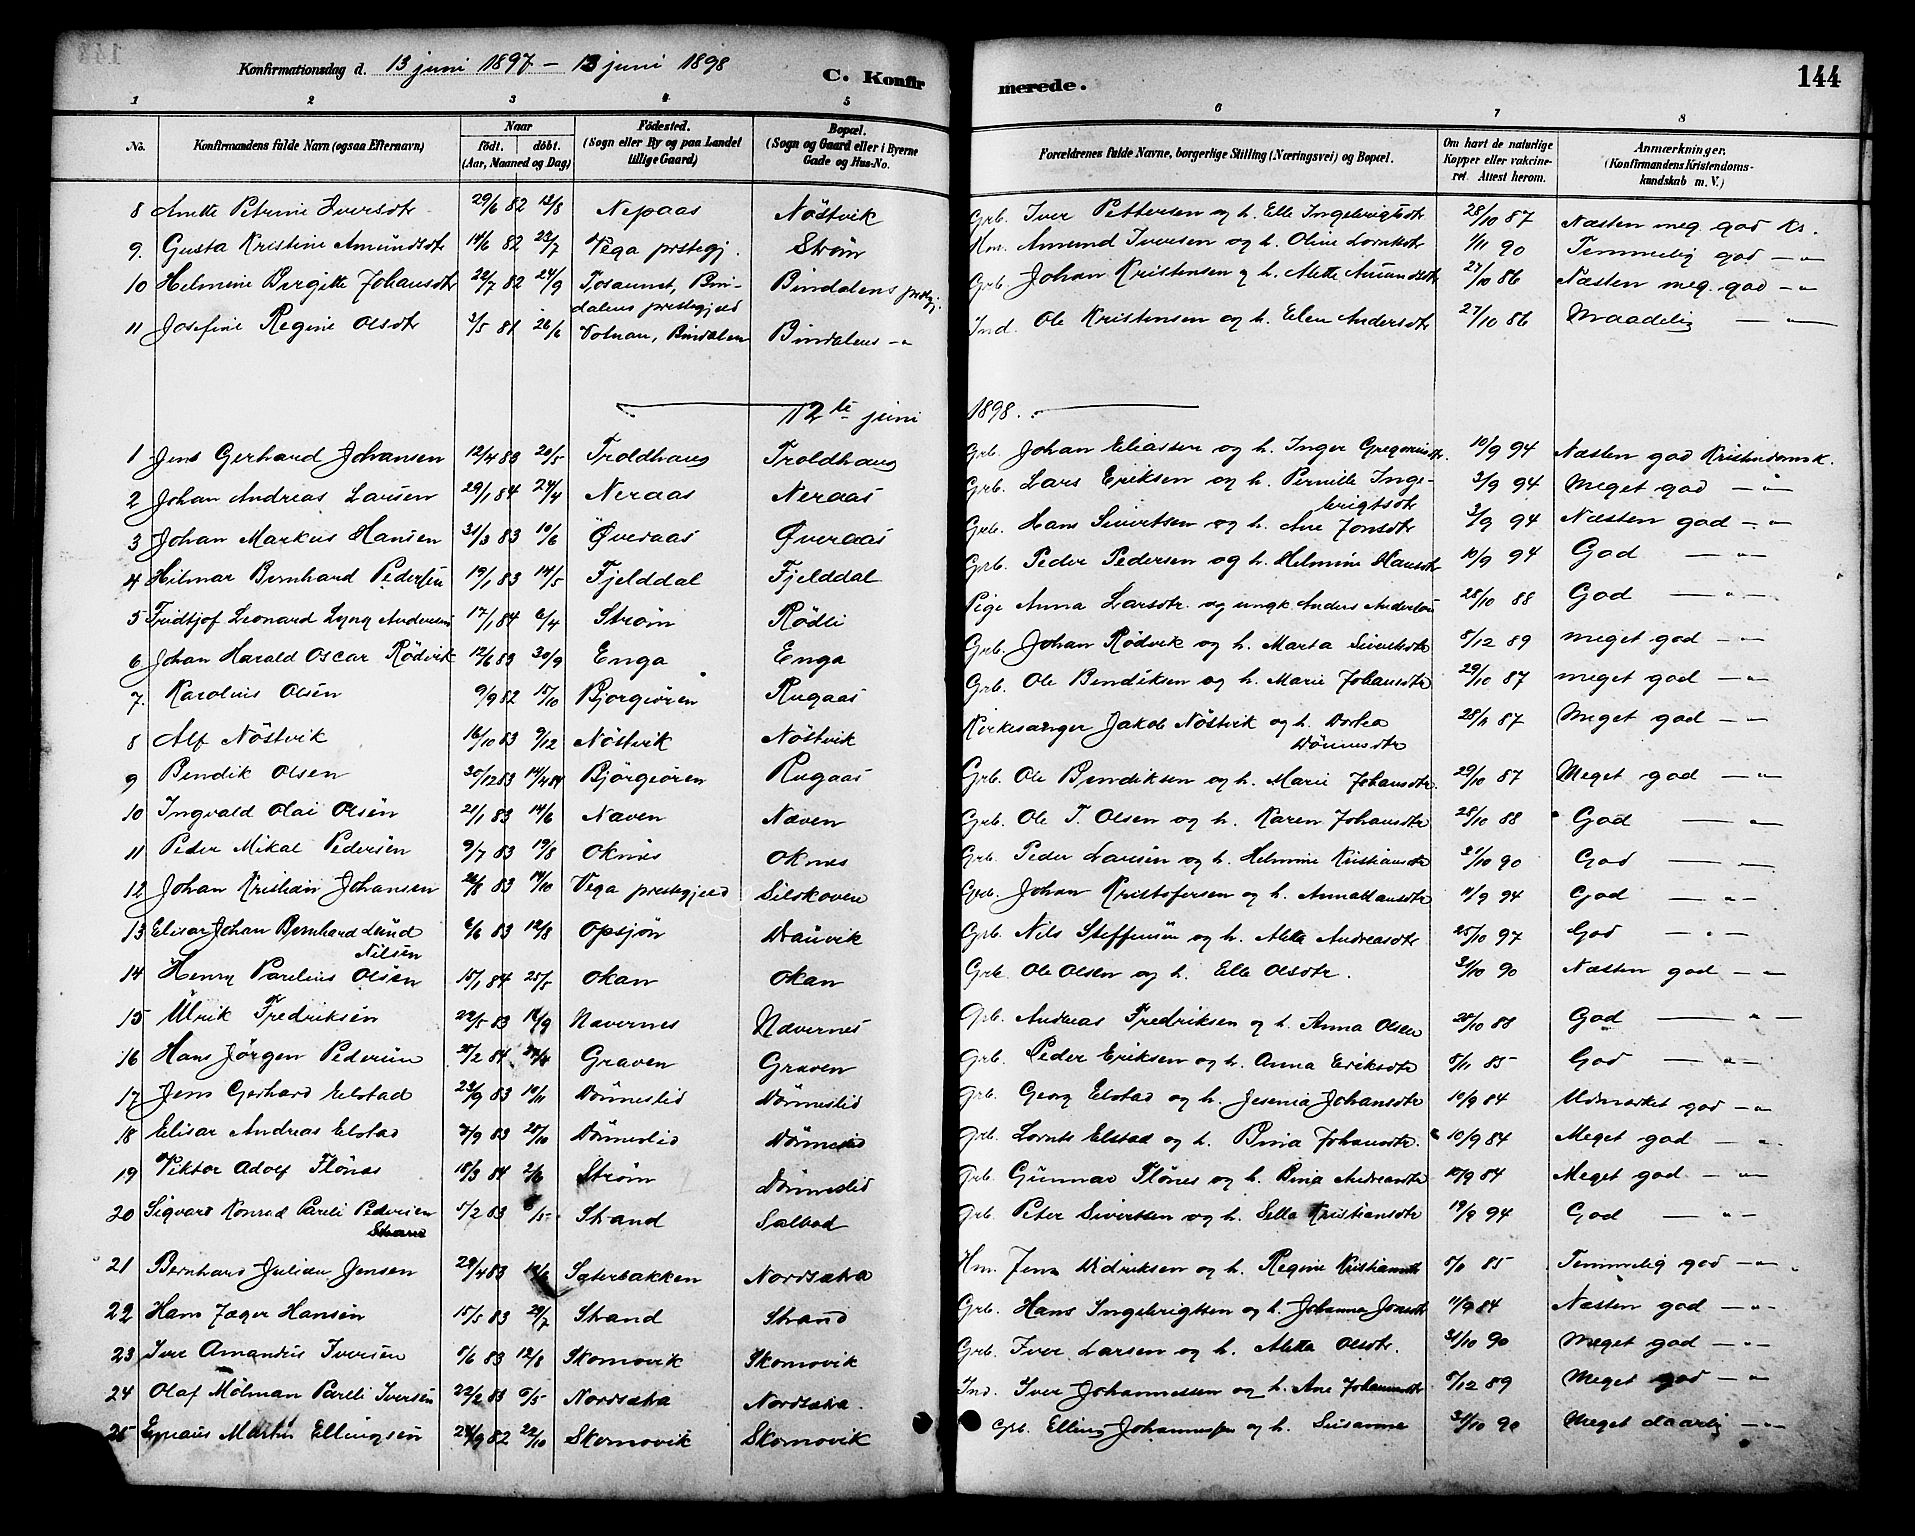 Konfirmationsdag d. 13 juni 1897 – 13 juni 1898 C. Konfirmerede. 144
1 2 3 4 5 6 7 8
No. Konfirmandens fulde Navn (ogsaa Efternavn) Naar födt. döbt. (Aar, Maaned og Dag) Födested. (Sogn eller By og paa Landet tillige Gaard) Bopæl. (Sogn og Gaard eller i Byerne Gade og Hus-No. Forældrenes fulde Navne, borgerlige Stilling (Næringsvei) og Bopæl. Om havt de naturlige Kopper eller vakcineret. Attest herom. Anmærkninger. (Konfirmandens Kristendomskundskab m. V.)
8 Anette Petrine Iversdtr 29/6 82 12/8 Nepaas Nöstvik Grb. Iver Pettersen og h. Elle Ingebrigtsdtr 28/10 87 Næsten meg. god Kr.
9. Gusta Kristine Amundsdtr 14/6 82 23/7 Vega prstegj. Ström Hm. Amund Iversen og h. Oline Lorntsdtr 1/11 90 Temmelig god — " —
10 Helmine Birgitte Johansdtr 22/7 82 24/9 Tosaunet, Bindalens prestegjeld Bindalens prstgj. Grb. Johan Kristensen og h. Alette Amundsdtr 27/10 86 Næsten meg. god — " —
11 Josefine Regine Olsdtr 3/5 81 26/6 Volnan, Bindalen Bindalens — " — Ind. Ole Kristensen og h. Elen Andersdtr 27/10 86 Maadelig — " —
12te juni 1898.
1 Jens Gerhard Johansen 12/4 83 20/5 Troldhaug Troldhaug Grb. Johan Eliassen og h. Inger Gregoriusdtr. 10/9 94 Næsten god Kristendomsk.
2 Johan Andreas Larsen 29/1 84 24/4 Neraas Neraas Grb. Lars Eriksen og h. Pernille Ingebrigtsdtr 3/9 94 Meget god — " —
3 Johan Markus Hansen 31/3 83 10/6 Överaas Överaas Grb. Hans Sivertsen og h. Ane Jonsdtr 3/9 94 Næsten god — " —
4 Hilmar Bernhard Pedersen 19/1 83 14/5 Fjelddal Fjelddal Grb. Peder Pedersen og h. Helmine Hansdtr 10/9 94 God — " —
5 Fridtjof Leonard Lyng Andersen 17/1 84 6/4 Ström Rödli Pige Anna Larsdtr. og ungk. Anders Andersen 28/10 88 God — " —
6 Johan Harald Oscar Rödvik 12/6 83 30/9 Enga Enga Grb. Johan Rödvik og h. Marta Sivertsdtr 8/12 89 meget god — " —
7. Karolius Olsen 9/9 82 15/10 Bjorgiören Rugaas Grb. Ole Bendiksen og h. Marie Johansdtr 29/10 87 meget god — " —
8 Alf Nöstvik 16/10 83 9/12 Nöstvik Nöstvik Kirkesanger Jakob Nöstvik og h. Dortea Dönnesdtr 28/11 87 Meget god — " —
9 Bendik Olsen 30/12 83 14/4 84 Björgiören Rugaas Grb. Ole Bendiksen og h. Marie Johansdtr. 29/10 87 Meget god — " —
10 Ingvald Olai Olsen 21/1 83 14/6 Næven Næven Grb. Ole T. Olsen og h. Karen Johansdtr 28/10 88 God — " —
11 Peder Mikal Pedersen 9/7 83 19/8 Oknes Oknes Grb. Peder Larsen og h. Helmine Kristiansdtr 31/10 90 God — " —
12 Johan Kristian Johansen 26/8 83 14/10 Vega prestegjeld Silskoven Grb. Johan Kristofersen og h. Anna Hansdtr 11/9 94 God — " —
13 Elisar Johan Bernhard Lund Nilsen 6/6 83 12/8 Opsjön Dauvik Grb. Nils Steffensen og h. Aletta Andreasdtr 25/10 97 God — " —
14 Henry Parelius Olsen 15/1 84 25/5 Okan Okan Grb. Ole Olsen og h. Elle Olsdtr. 31/10 90 Næsten god — " —
15 Ulrik Fredriksen 22/5 83 16/9 Nævernes Nævernes Grb. Andreas Fredriksen og h. Anna Olsen 28/10 88 God — " —
16 Hans Jörgen Pedersen 28/2 84 Graven Graven Grb. Peder Eriksen og h. Anna Eriksdtr 5/11 85 God — " —
17 Jens Gerhard Elstad 23/9 83 18/11 Dönneslid Dönneslid Grb. Georg Elstad og h. Jesenia Johansdtr 10/9 84 Udmærket god — " —
18 Elisar Andreas Elstad 3/9 83 28/10 Dönneslid Dönneslid Grb. Lornts Elstad og h. Bina Johansdtr. 10/9 84 Meget god — " —
19 Viktor Adolf Flönes 18/3 84 2/6 Ström Dönneslid Grb. Gunnar Flönes og h. Bina Andreasdtr 10/9 84 Meget god — " —
20 Sigvart Konrad Pareli Pedersen Strand 5/2 83 /5 Strand Salbod Grb. Peter Sivertsen og h. Sella Kristiansdtr 19/9 94 God — " —
21 Bernhard Julian Jensen 29/4 83 Sæterbakken Nordsætra Hm. Jens Didriksen og h. Regine Kristiansdtr 5/11 85 Temmelig god — " —
22 Hans Jæger Hansen 15/5 83 29/7 Strand Strand Grb. Hans Ingebrigtsen og h. Johanna Jonsdtr 11/9 84 Næsten god — " —
23 Iver Amandus Iversen 5/6 83 12/8 Skomovik Skomovik Grb. Iver Larsen og h. Aletta Olsdtr. 31/10 90 Meget god — " —
24 Olaf Molman Pareli Iversen 22/2 83 6/5 Nordsætra Nordsætra. Ind. Iver Johannessen og h. Ane Johannesdtr 8/12 89 Meget god — " —
25 Martin Ellingsen 24/9 82 22/10 Skomovik Skomovik Grb. Elling Johannessen og h. Susanna 31/10 90 Meget daarlig — " —